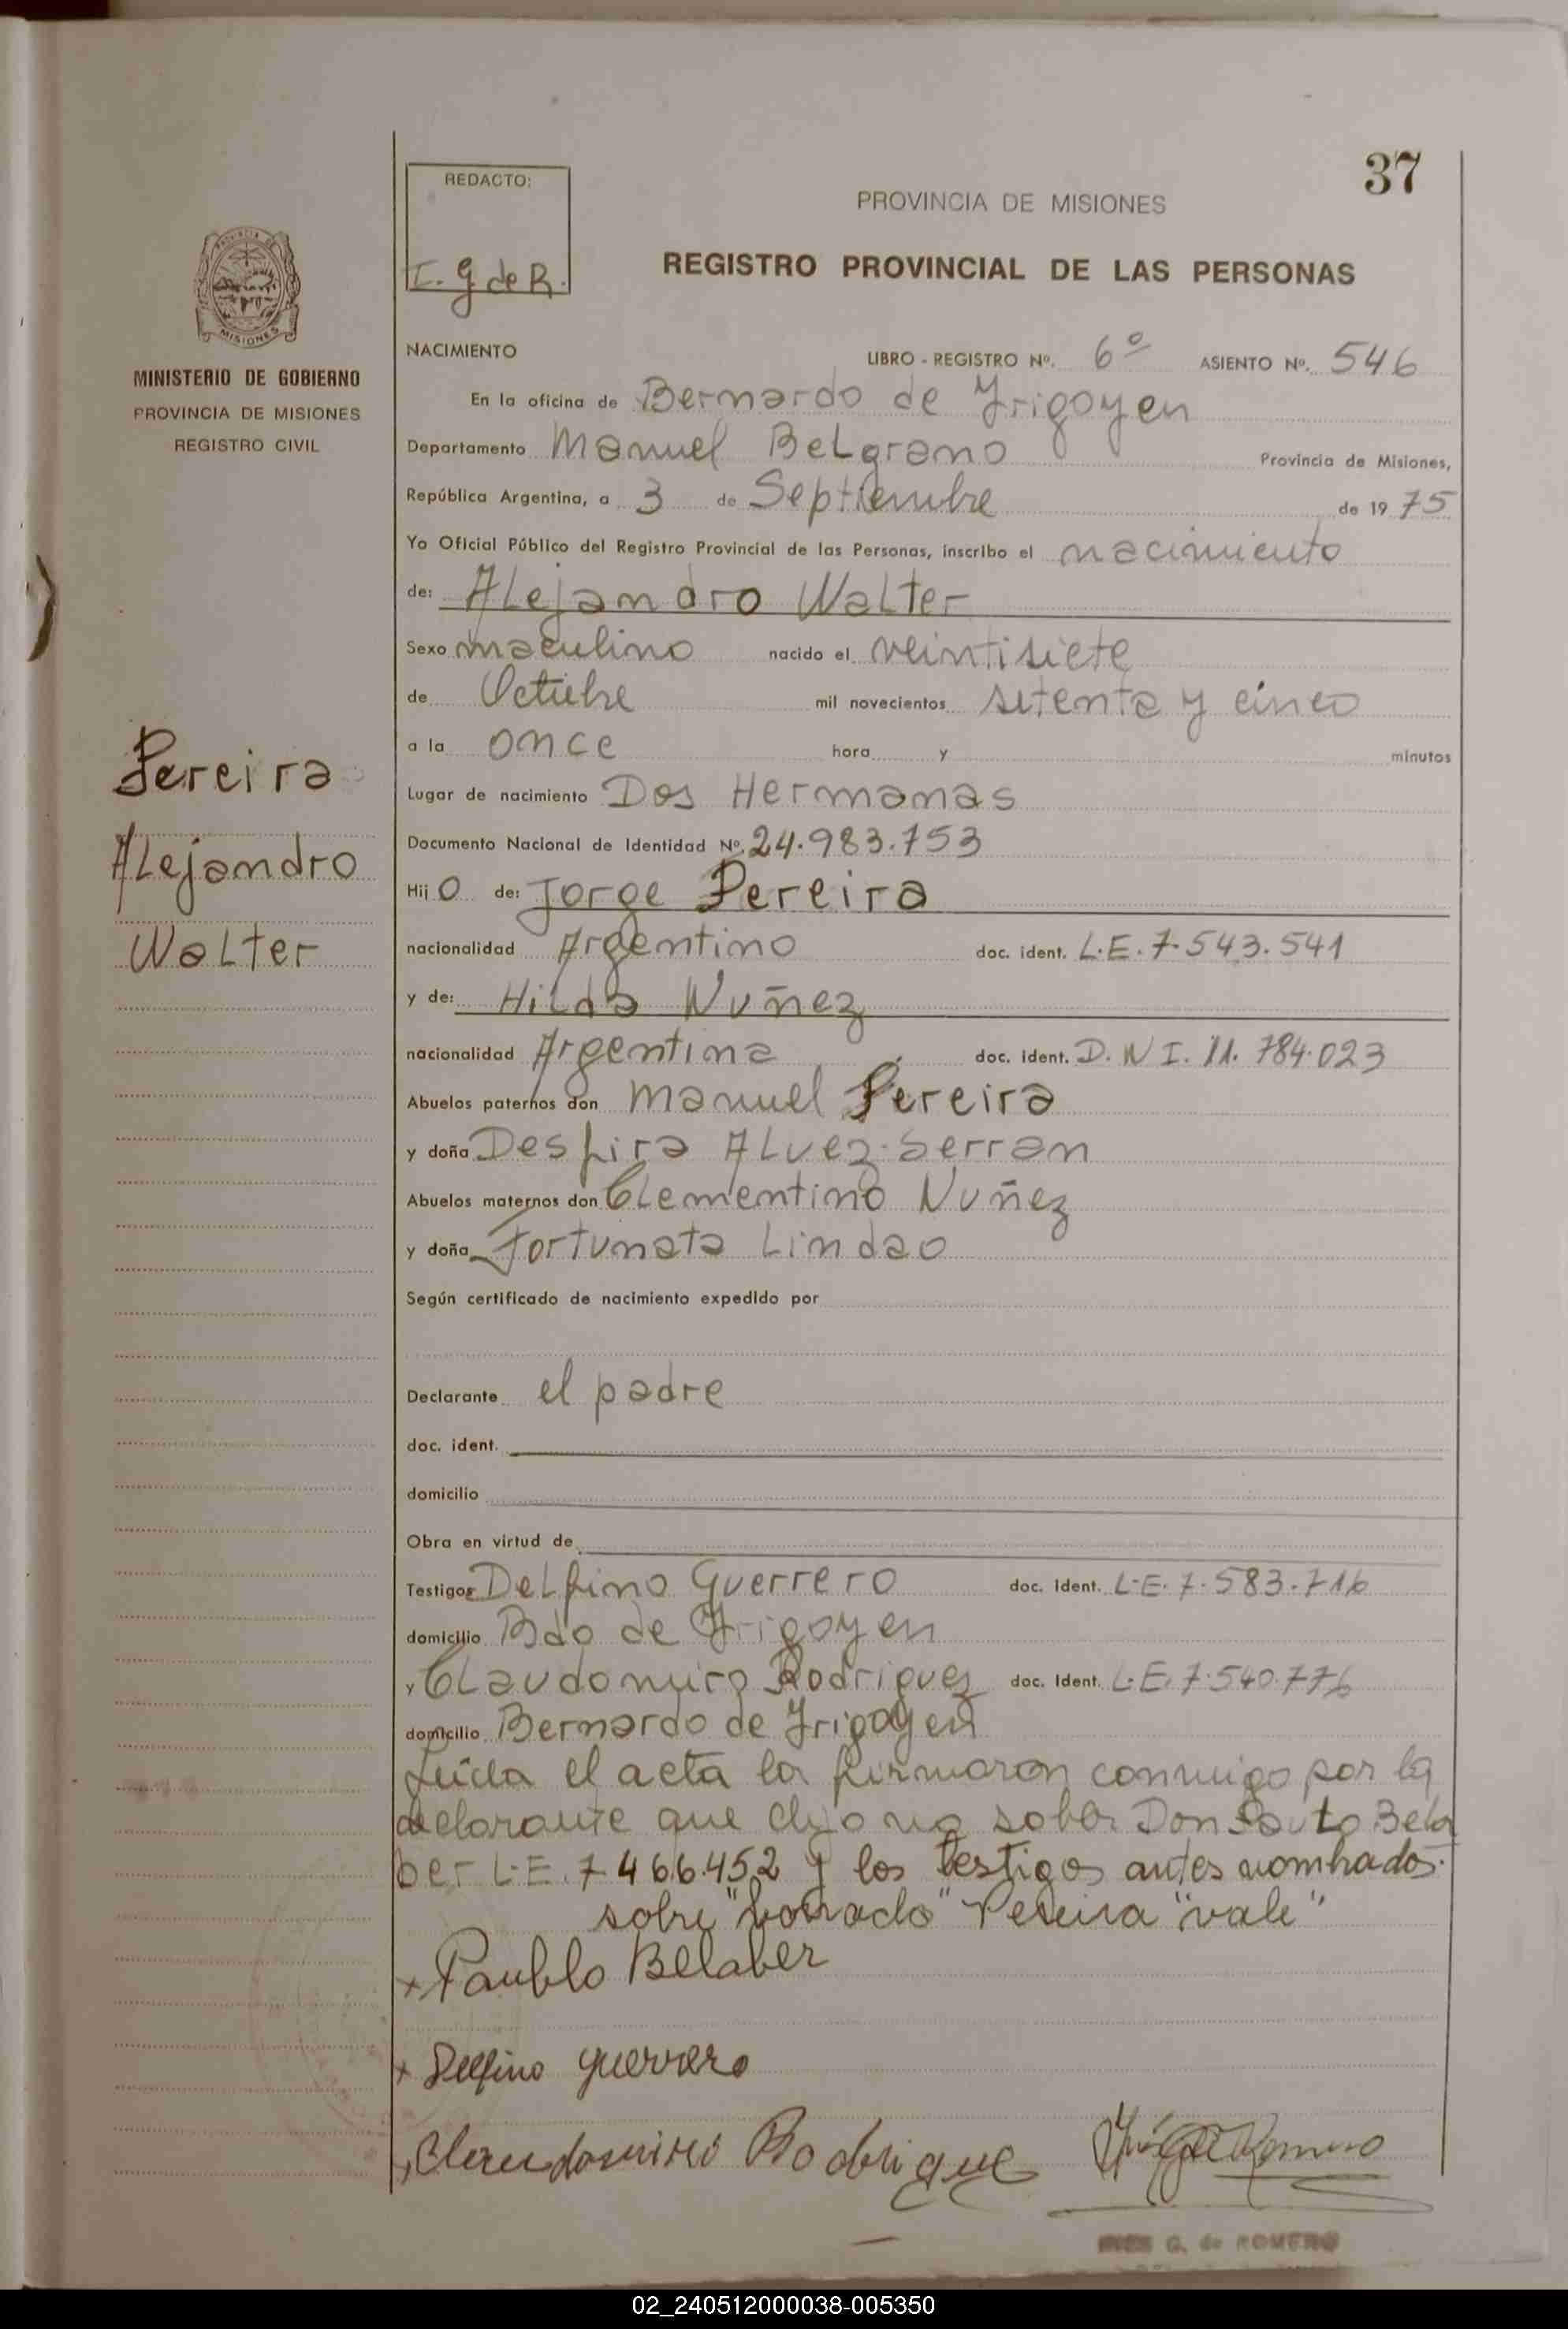 37
REDACTO:
I. G de R.
PROVINCIA DE MISIONES
REGISTRO PROVINCIAL DE LAS PERSONAS
MISIONES
MINISTERIO DE GOBIERNO
PROVINCIA DE MISIONES
REGISTRO CIVIL
Pereira
Alejandro
Walter
NACIMIENTO LIBRO - REGISTRO Nº. 6º ASIENTO Nº. 546
En la oficina de Bernardo de Yrigoyen
Departamento Manuel Belgrano Provincia de Misiones,
República Argentina, a 3 de Septiembre de 19 75
Yo Oficial Público del Registro Provincial de las Personas, inscribo el nacimiento
de: Alejandro Walter
Sexo masculino nacido el veintisiete
de Octubre mil novecientos setenta y cinco
a la once hora y minutos
Lugar de nacimiento Dos Hermanas
Documento Nacional de Identidad Nº. 24.983.753
Hij o de: Jorge Pereira
nacionalidad Argentino doc. ident. L.E. 7.543.541
y de: Hilda Nuñez
nacionalidad Argentina doc. ident. D.N I. 11.784.023
Abuelos paternos don Manuel Pereira
y doña Desfira Alvez Serran
Abuelos maternos don Clementino Nuñez
y doña Fortunata Lindao
Según certificado de nacimiento expedido por
Declarante el padre
doc. ident.
domicilio
Obra en virtud de
Testigos Delfino Guerrero doc. ident. L.E. 7.583.716
domicilio Bdo de Yrigoyen
y Claudomiro Rodriguez doc. ident. L.E. 7.540.776
domicilio Bernardo de Yrigoyen
Leida el acta la firmaron conmigo por la
declarante que dijo no saber Don Pauto Bela
ber L.E. 7466.452 y los testigos antes nombrados.
sobre "borrado" Pereira "vale"
x Paublo Belaber
x Delfino guerrero
x Claudomiro Rodrigue
INES G. de ROMERO
02_240512000038-005350